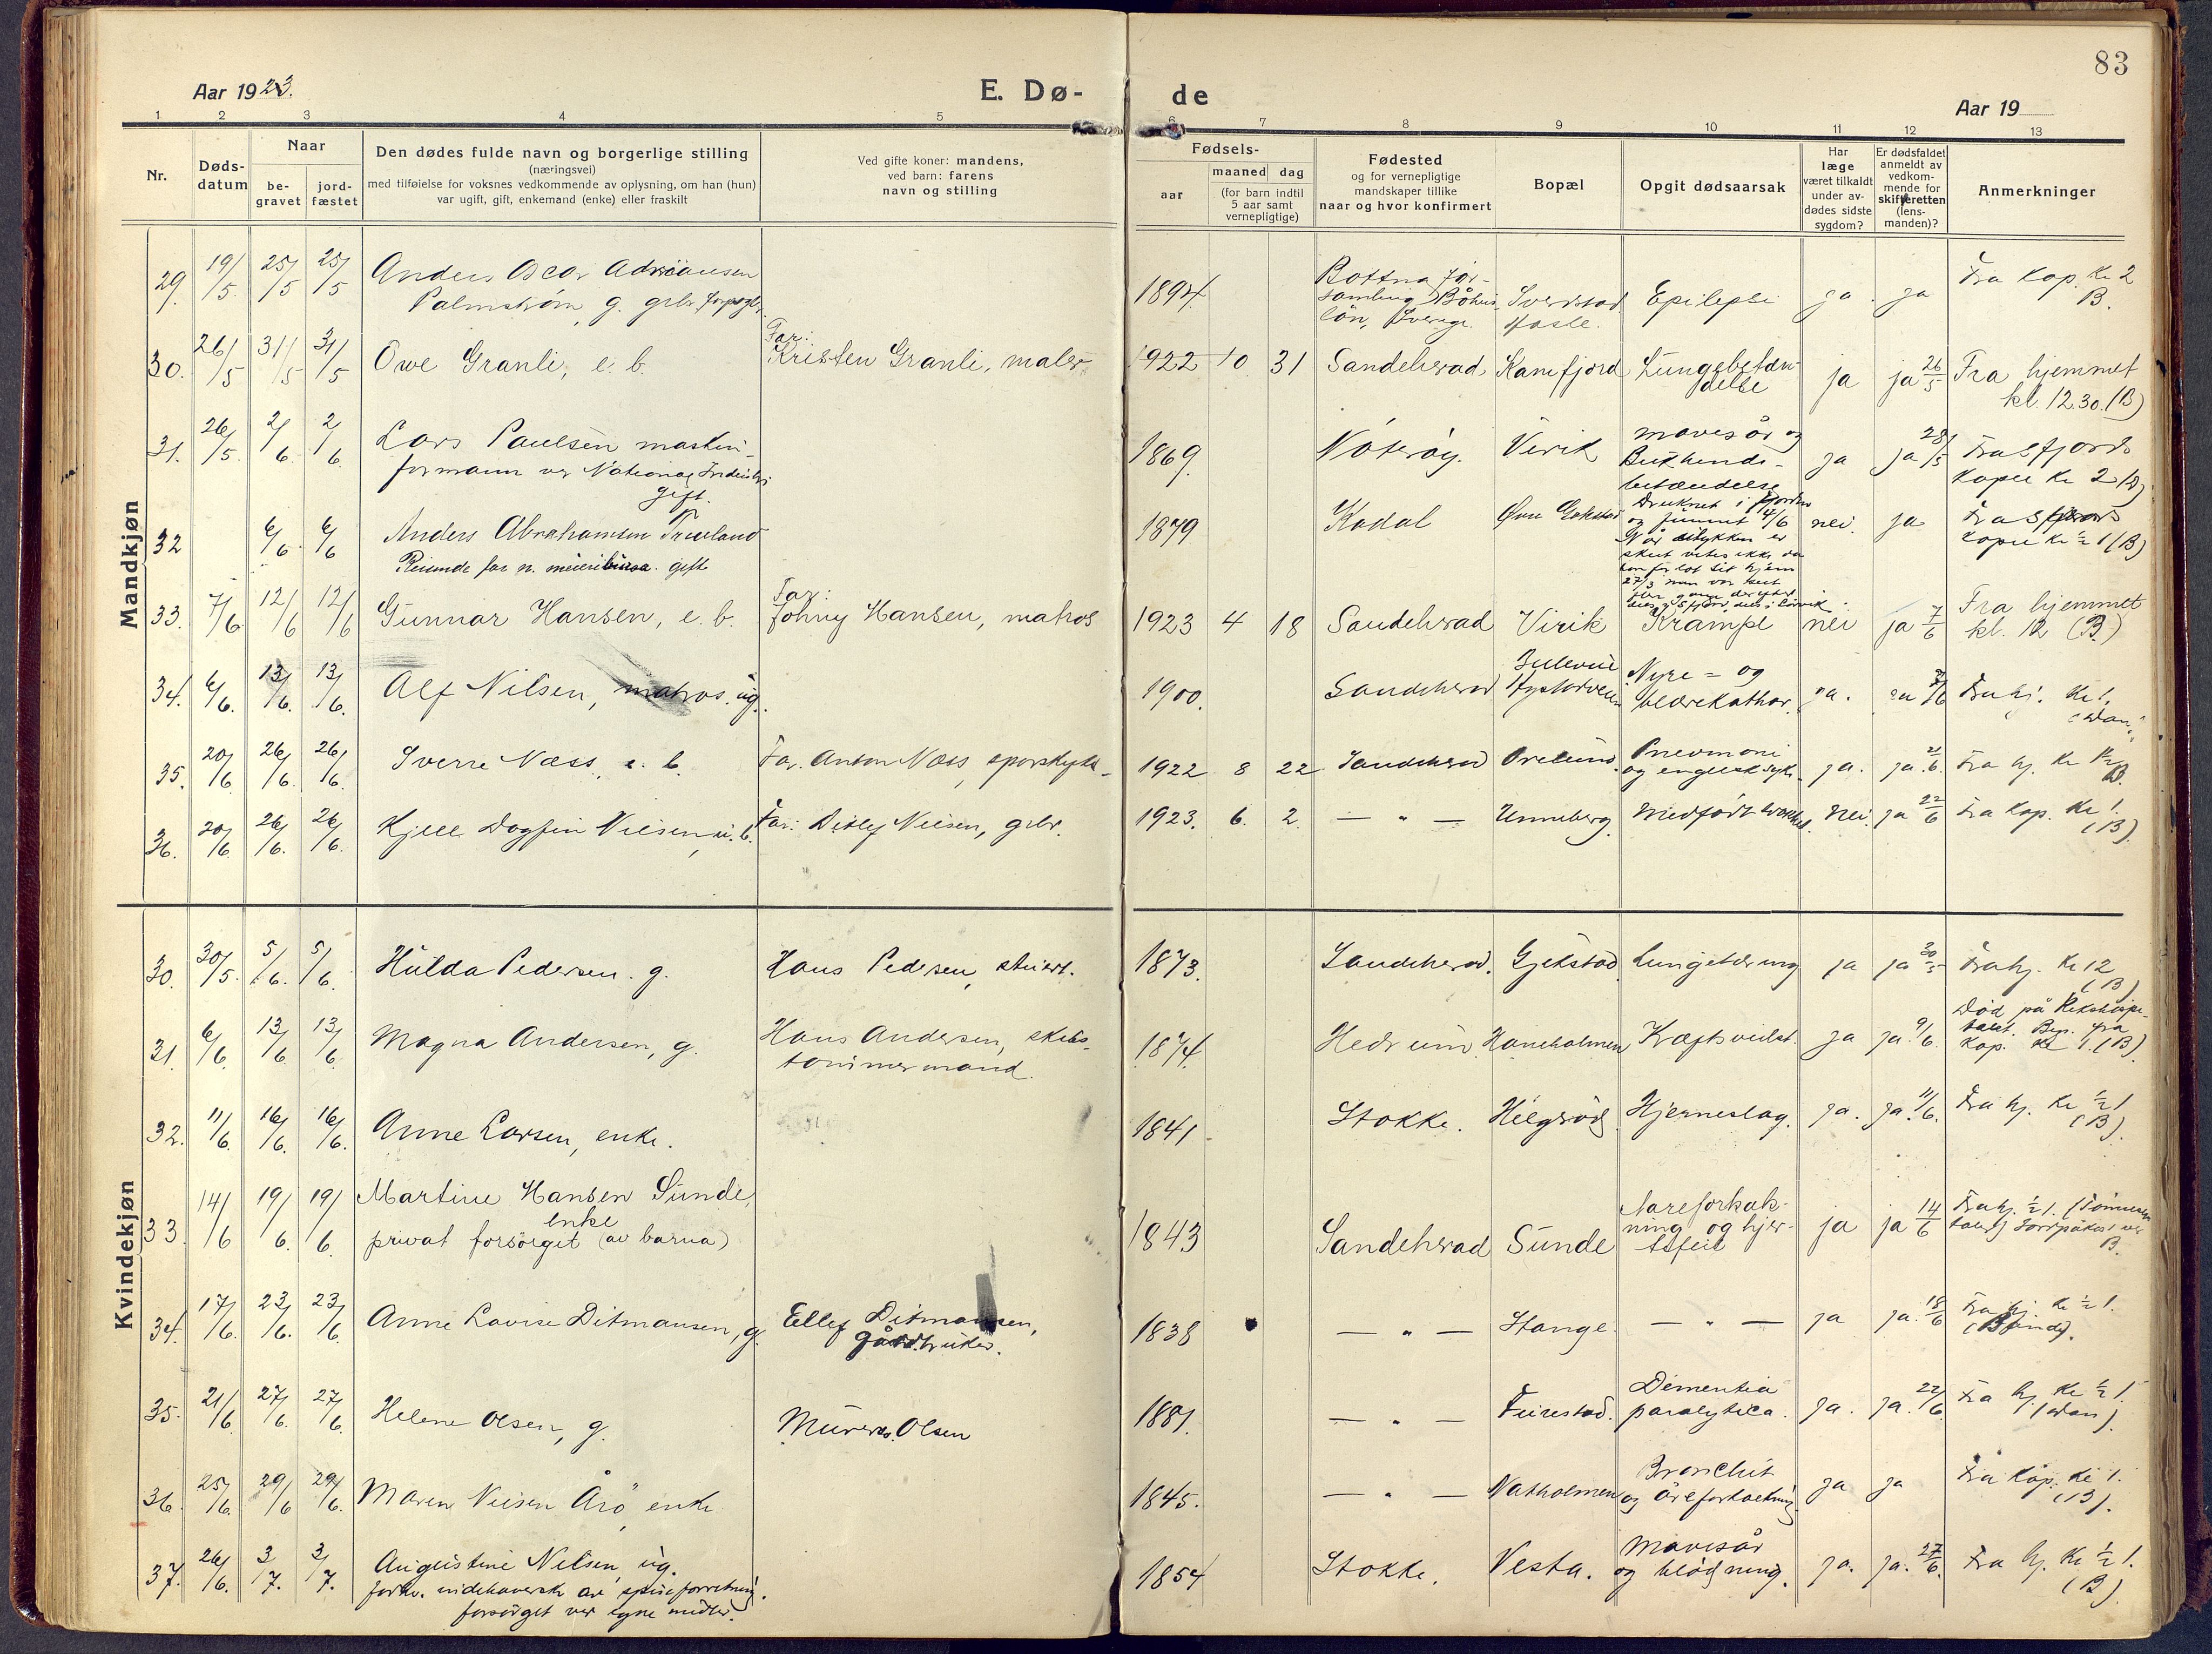 83
Aar 1923.
E. Dø-
de
Aar 19
1 2 3 4 5 6 7 8 9 10 11 12 13
Nr.
Døds-
datum
Naar
be-
gravet
jord-
fæstet
Den dødes fulde navn og borgerlige stilling
(næringsvei)
med tilføielse for voksnes vedkommende av oplysning, om han (hun)
var ugift, gift, enkemand (enke) eller fraskilt
Ved gifte koner: mandens,
ved barn: farens
navn og stilling
Fødsels-
aar
maaned dag
(for barn indtil
5 aar samt
vernepligtige)
Fødested
og for vernepligtige
mandskaper tillike
naar og hvor konfirmert
Bopæl
Opgit dødsaarsak
Har
læge
været tilkaldt
under av-
dødes sidste
sygdom?
Er dødsfaldet
anmeldt av
vedkom-
mende for
skifteretten
(lens-
manden)?
Anmerkninger
Mandkjøn
29. 19/5. 25/5 25/5 Anders Oscar Adriansen
Palmstrøm, g. grbr.
1894 Bottna för-
samling, Bohus
län, Sverige. Epilepsi ja. ja Fra kap. kl. 2
B.
30. 26/5 31/5 31/5 Owe Granli, e. b.
Far:
Kristen Granli, maler
1922 10 31 Sandeherad Kamfjord Lungebetæn-
delse ja ja 26/5 Fra hjemmet
kl. 12.30. (B)
31. 26/5. 2/6. 2/6. Lars Paulsen maskin-
formann ved National Industri
gift.
1869. Nøterøy. Virik mavesår og
Bukhinde-
betændelse ja ja 28/5 Fra Sfjords
kapel kl. 2 (B)
32 6/6. 6/6 Anders Abrahamsen
Reisende for n. meieri gift
1879 Kodal Øvre Gokstad Druknet i fjorden
og funnet 4/6
Når ulykken er
skeet vites ikke da
han forlot sit hjem
27/3
nei. ja Fra Sfjords
kapel kl. ½ 1 (B)
33. 7/6 12/6 12/6 Gunnar Hansen, e. b.
Far:
Johny Hansen, matros
1923 4 18 Sandeherad Virik Krampe nei ja 7/6 Fra hjemmet
kl. 12 (B)
34. 6/6. 13/6. 13/6. Alf Nilsen, matros. ug.
1900. Sandeherad Nyre- og
blærekathar. ja. ja Fra hj. kl. 1.
35. 20/6 26/6. 26/6. Sverre Næss, e. b. Far. Anton Næss,
1922 8 22 Sandeherad Pneumoni
og engelsk syke ja. ja. 21/6. Fra hj. kl. ½
B.
36. 20/6. 26/6. 26/6. Kjell Dagfin Nilsen, u. b. Far: Detlef Nilsen, grbr.
1923. 6. 2. — " — Unneberg. Medfødt svakhet. Nei. ja 22/6 Fra kap. kl. 1
(B).
Kvindekjøn
30. 30/5. 5/6. 5/6. Hulda Pedersen. g. Hans Pedersen, stuert.
1873. Sandeherad. Gjekstad Lungetæring ja ja 30/5 Fra hj. kl. 12
(B)
31. 6/6. 13/6. 13/6. Magna Andersen, g. Hans Andersen, skibs-
tømmermand.
1874. Hedrum Haneholmen Kræftsvulst. ja ja. 9/6. Død på Rikshospi-
talet. Beg. fra
kap. kl. 1. (B).
32. 11/6. 16/6. 16/6. Anne Larsen, enke.
1841 Stokke. Helgerød Hjerneslag. ja. ja. 11/6. Fra hj. kl. ½ 1
(B).
33. 14/6 19/6. 19/6. Martine Hansen Sunde,
enke
privat forsørget (av barna)
1843 Sandeherad Sunde Aareforkalk-
ning og hjer-
tefeil ja ja 14/6 Fra hj. ½ 1.
B.
34. 17/6. 23/6. 23/6. Anne Lovise Ditmansen, g. Ellef Ditmansen,
gårdbruker.
1838 — " — Stange. — " — ja ja. 18/6 Fra hj. kl. ½ 1.
35. 21/6. 27/6. 27/6. Helene Olsen, g. Murer Olsen
1881. — " — Furustad. Dementia
paralytica. ja. ja. 22/6 Fra hj. kl. ½ 1.
36. 25/6. 29/6 29/6. Maren Nilsen Årö, enke
1845. — " — Natholmen Bronchit
og åreforkalkning. ja ja Fra kap. kl. 1.
(B).
37. 26/6. 3/7. 3/7. Augustine Nilsen, ug.
forhv. indehaverske av spiseforretning.
forsørget ved egne midler.
1854 Stokke. Vesta. Mavesår
og blødning. ja. ja. 27/6. Fra hj. kl. ½ 1.
(B).